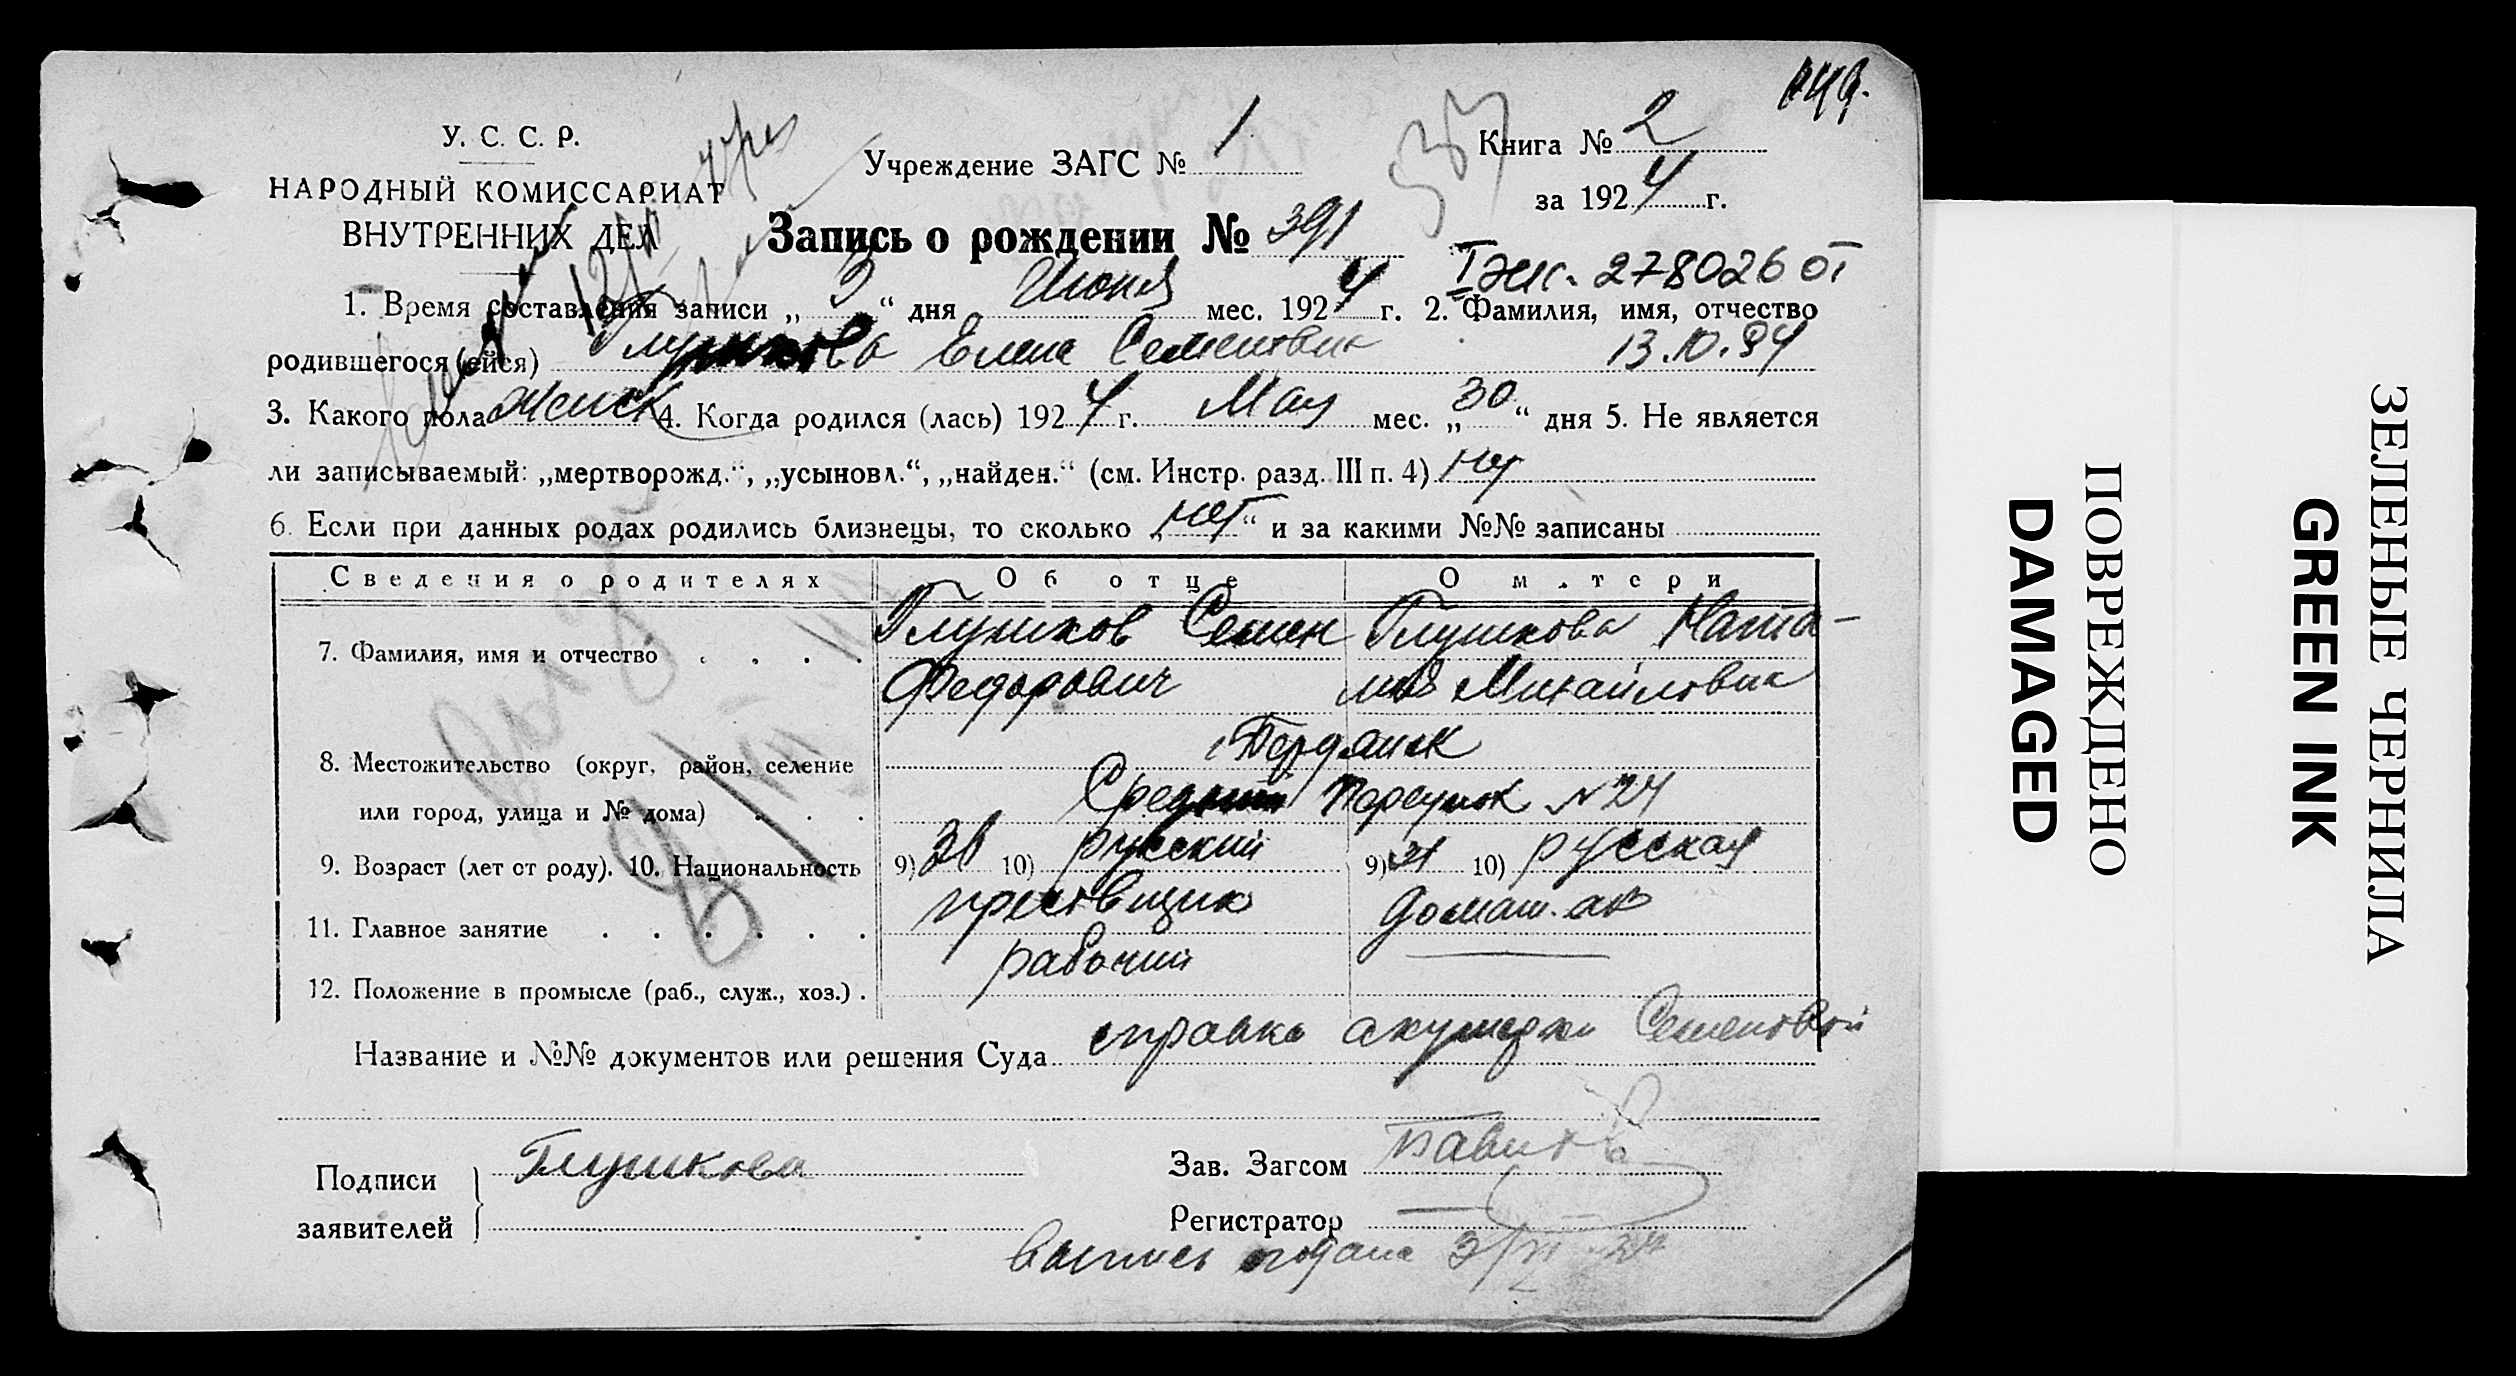 449.
У. С. С. Р.
НАРОДНЫЙ КОМИССАРИАТ
ВНУТРЕННИХ ДЕЛ
Учреждение ЗАГС № 1
Книга № 2
за 1924 г.
Запись о рождении № 391
I жк. 278026 от
1. Время составления записи „3“ дня Июня мес. 1924 г. 2. Фамилия, имя, отчество
родившегося (ейся) Глушкова Елена Семеновна 13.10.94
3. Какого пола женск 4. Когда родился (лась) 1924 г. Мая мес. „30“ дня 5. Не является
ли записываемый: „мертворожд.“, „усыновл.“, „найден.“ (см. Инстр. разд. III п. 4) нет
6. Если при данных родах родились близнецы, то сколько „нет“ и за какими №№ записаны
Сведения о родителях Об отце О матери
7. Фамилия, имя и отчество . . . . Глушков Семен Глушкова Ната-
Федорович лия Михайловна
г Бердянск
8. Местожительство (округ, район, селение
или город, улица и № дома) . . . Средний Переулок № 24
9. Возраст (лет от роду). 10. Национальность 9) 10) русский 9) 10) русская
11. Главное занятие . . . . . . домаш.
12. Положение в промысле (раб., служ., хоз.) . рабочий
Название и №№ документов или решения Суда справка акушерки Семеновой
Подписи
заявителей
Глушкова
Зав. Загсом
Регистратор
ПОВРЕЖДЕНО
DAMAGED
ЗЕЛЕНЫЕ ЧЕРНИЛА
GREEN INK